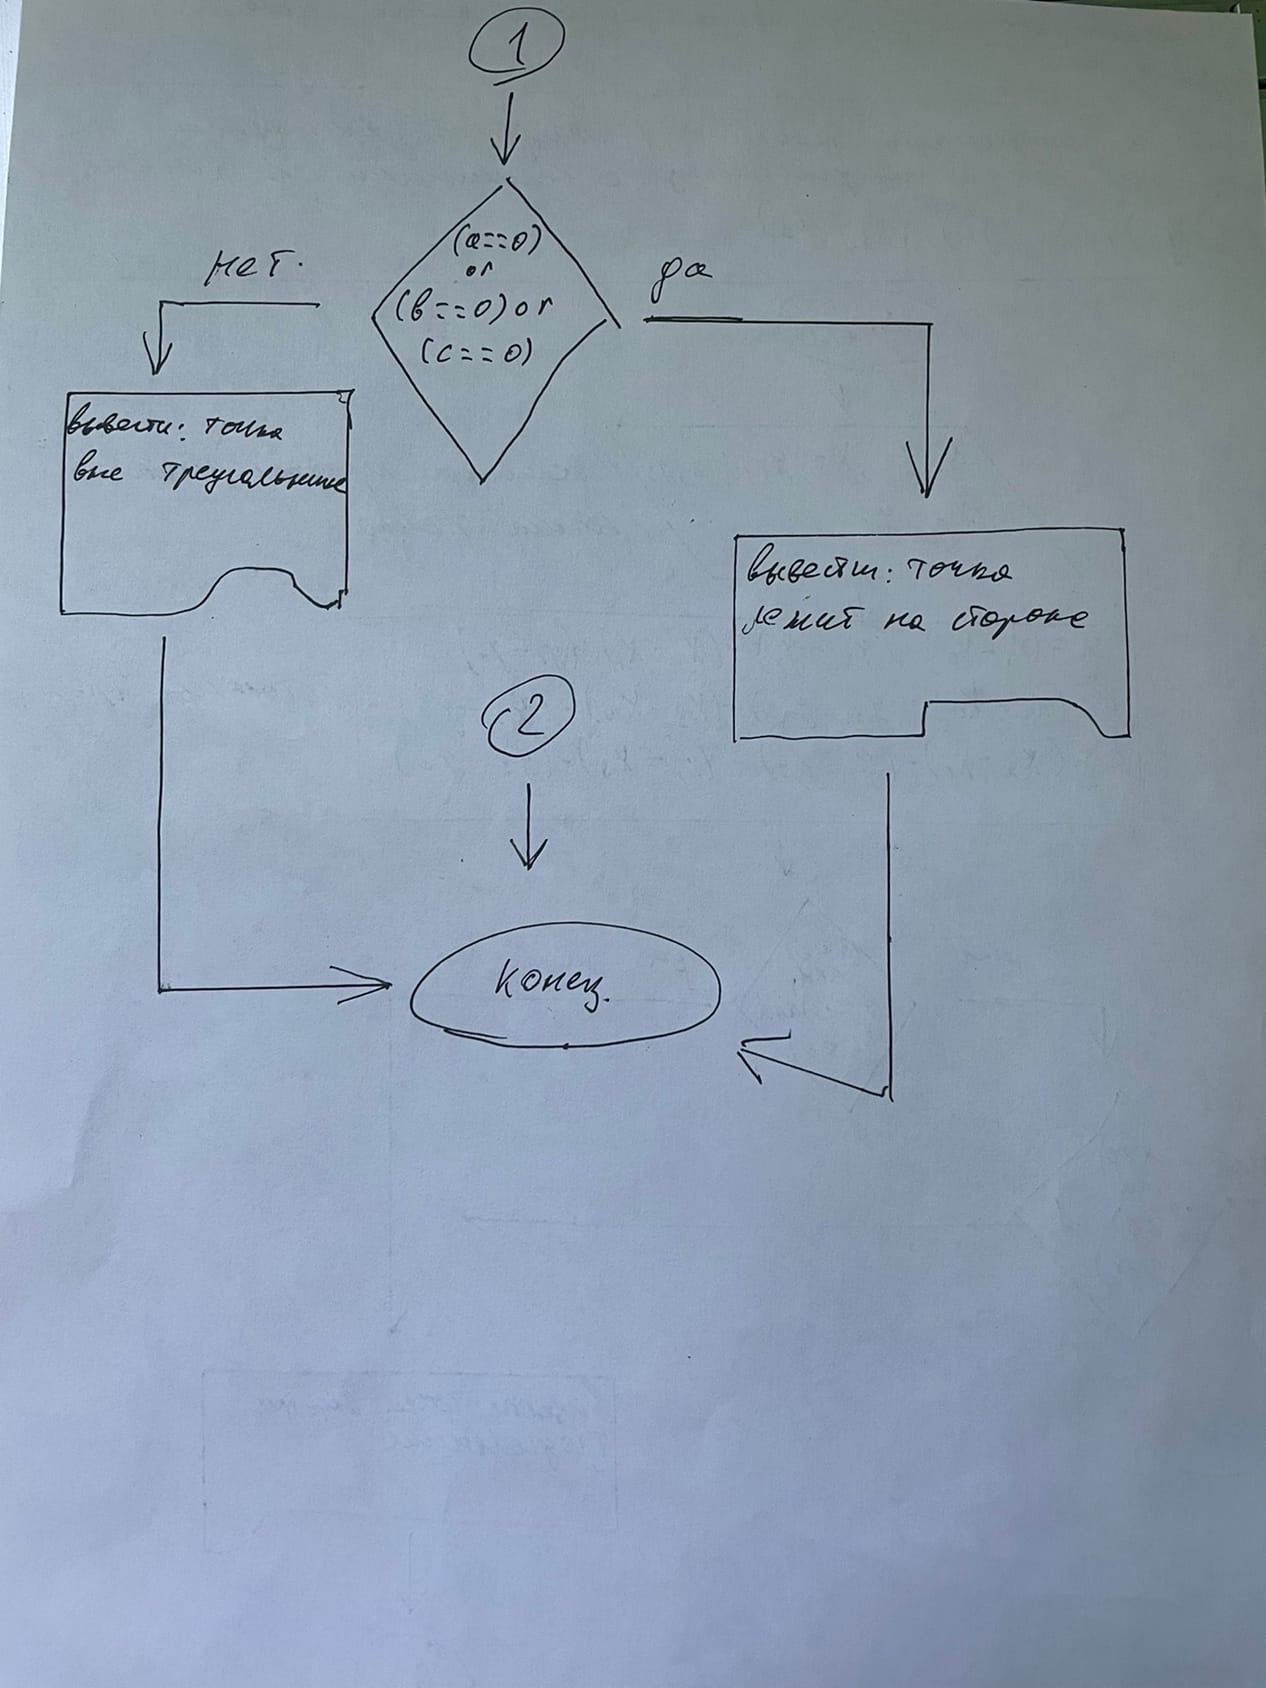 1
(a==0)
or
(в==0) or
(c==0)
нет.
да
вывести: точка
вне треугольника
вывести: точка
лежит на стороне
2
конец.